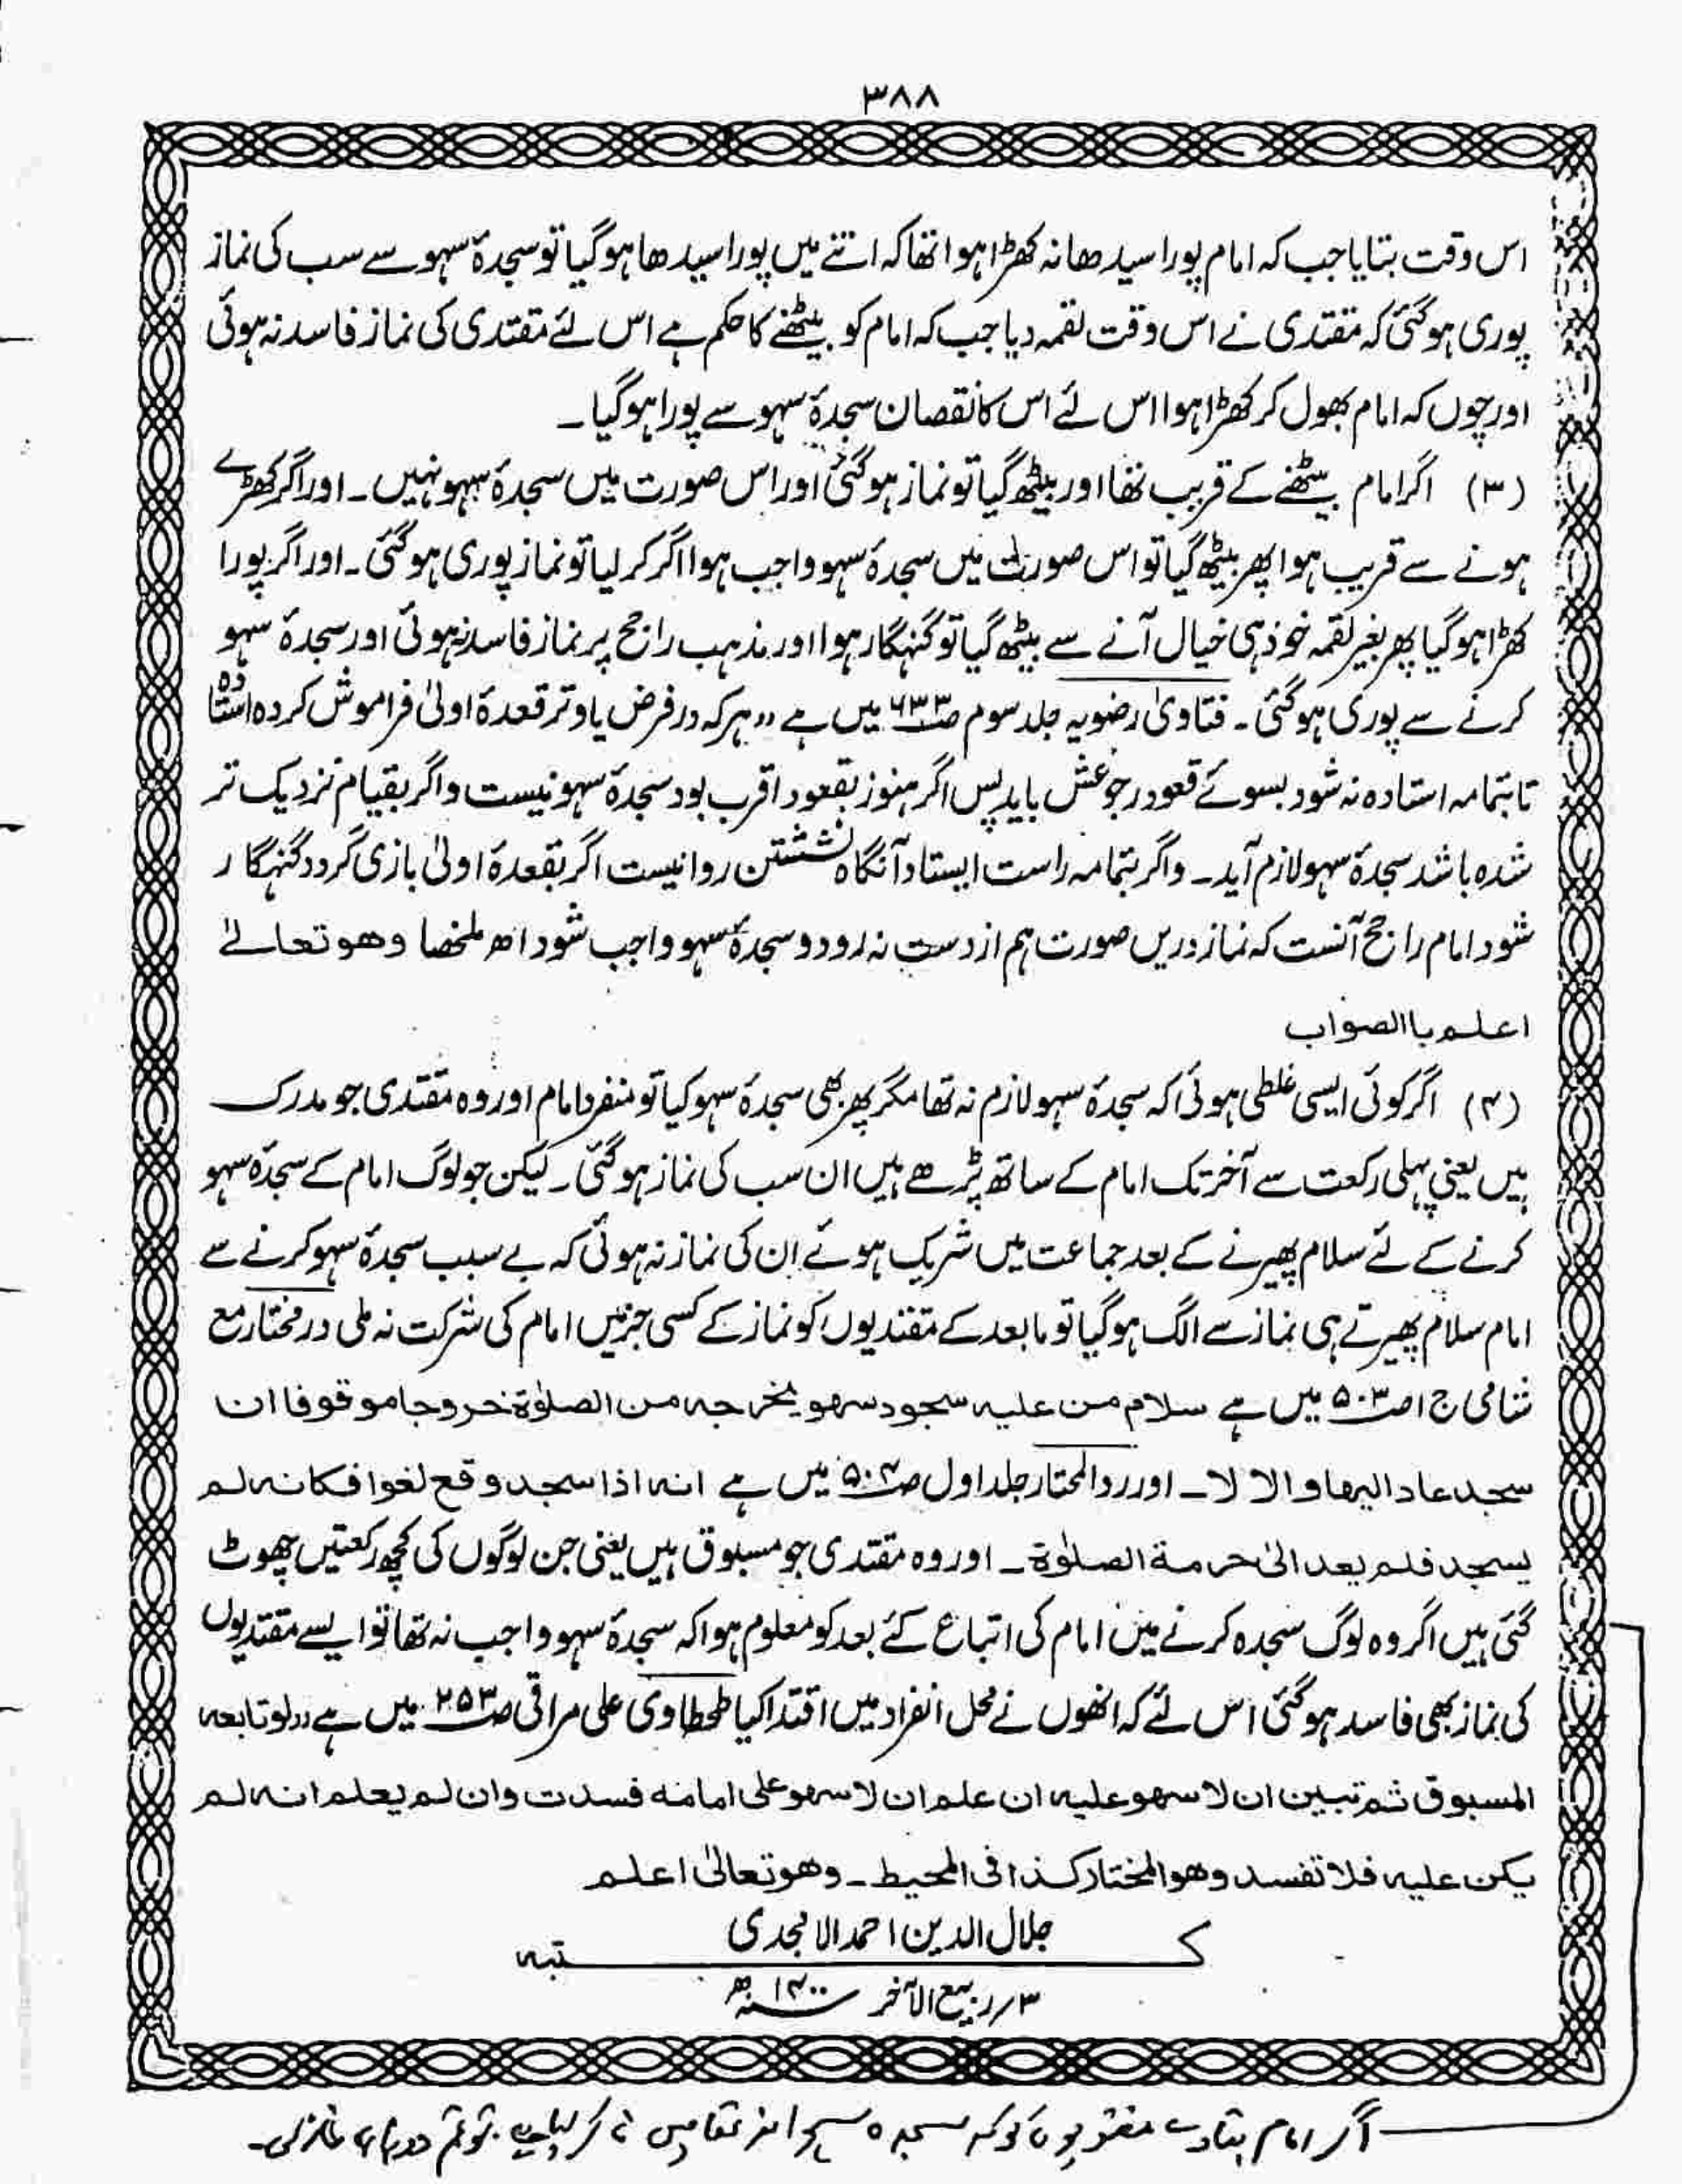 ۳۸۸
اس وقت بتایا جب کہ امام پورا سیدھا نہ کھڑا ہوا تھا کہ اتنے میں پورا سیدھا ہوگیا تو سجدۂ سہو سے سب کی نماز
پوری ہوگئی کہ مقتدی نے اس وقت لقمہ دیا جب کہ امام کو بیٹھنے کا حکم ہے اس لئے مقتدی کی نماز فاسد نہ ہوئی
اور چوں کہ امام بھول کر کھڑا ہوا اس لئے اس کا نقصان سجدۂ سہو سے پورا ہوگیا۔
(۳) اگر امام بیٹھنے کے قریب تھا اور بیٹھ گیا تو نماز ہوگئی اور اس صورت میں سجدۂ سہو نہیں۔ اور اگر کھڑے
ہونے سے قریب ہوا پھر بیٹھ گیا تو اس صورت میں سجدۂ سہو واجب ہوا اگر کر لیا تو نماز پوری ہوگئی۔ اور اگر پورا
کھڑا ہوگیا پھر بغیر لقمہ خود ہی خیال آنے سے بیٹھ گیا تو گنہگار ہوا اور مذہب راجح پر نماز فاسد نہ ہوئی اور سجدۂ سہو
کرنے سے پوری ہوگئی۔ فتاویٰ رضویہ جلد سوم ص۶۳۳ میں ہے ,,ہر کہ در فرض یا وتر قعدۂ اولیٰ فراموش کردہ استادہ
تا بتمامہ استادہ نہ شود بسوئے قعود رجوعش باید پس اگر ہنوز بقعود اقرب بود سجدۂ سہو نیست و اگر بقیام نزدیک تر
شدہ باشد سجدۂ سہو لازم آید۔ واگر بتمامہ راست ایستاد آنگاہ نشستن روا نیست اگر بقعدۂ اولیٰ بازی گردد گنہگا ر
شود امام راجح آنست کہ نماز دریں صورت ہم از دست نہ رود و سجدۂ سہو واجب شود اھ ملخصا وھو تعالےٰ
اعلم باالصواب
(۴) اگر کوئی ایسی غلطی ہوئی کہ سجدۂ سہو لازم نہ تھا مگر پھر بھی سجدۂ سہو کیا تو منفرد امام اور وہ مقتدی جو مدرک
ہیں یعنی پہلی رکعت سے آخر تک امام کے ساتھ پڑھے ہیں ان سب کی نماز ہوگئی۔ لیکن جو لوگ امام کے سجدۂ سہو
کرنے کے لئے سلام پھیرنے کے بعد جماعت میں شریک ہوئے ان کی نماز نہ ہوئی کہ بے سبب سجدۂ سہو کرنے سے
امام سلام پھیرتے ہی نماز سے الگ ہوگیا تو ما بعد کے مقتدیوں کو نماز کے کسی جز میں امام کی شرکت نہ ملی در مختار مع
شامی ج ا ص۵۰۳ میں ہے سلام من علیہ سجود سھو یخرجہ من الصلوٰۃ خروجا موقوفا ان
سجد عاد الیھا والا لا۔ اور رد المحتار جلد اول ص۵۰۴ میں ہے انہ اذا سجد وقع لغوا فکانہ لم
یسجد فلم یعد الیٰ حرمۃ الصلوٰۃ۔ اور وہ مقتدی جو مسبوق ہیں یعنی جن لوگوں کی کچھ رکعتیں چھوٹ
گئی ہیں اگر وہ لوگ سجدہ کرنے میں امام کی اتباع کئے بعد کو معلوم ہوا کہ سجدۂ سہو واجب نہ تھا تو ایسے مقتدیوں
کی نماز بھی فاسد ہوگئی اس لئے کہ انھوں نے محل انفراد میں اقتدا کیا طحطاوی علی مراقی ص۲۵۳ میں ہے ,,لو تابعہ
المسبوق ثم تبین ان لا سھو علیہ ان علم ان لا سھو علی امامہ فسدت وان لم یعلم انہ لم
یکن علیہ فلا تفسد وھو المختار کذا فی المحیط۔ وھو تعالیٰ اعلم
جلال الدین احمد الامجدی
کتبہ
۳؍ ربیع الآخر ۱۴۰۰ھ
اگر امام بتادے مقتدیوں کو کہ سجدہ سہو